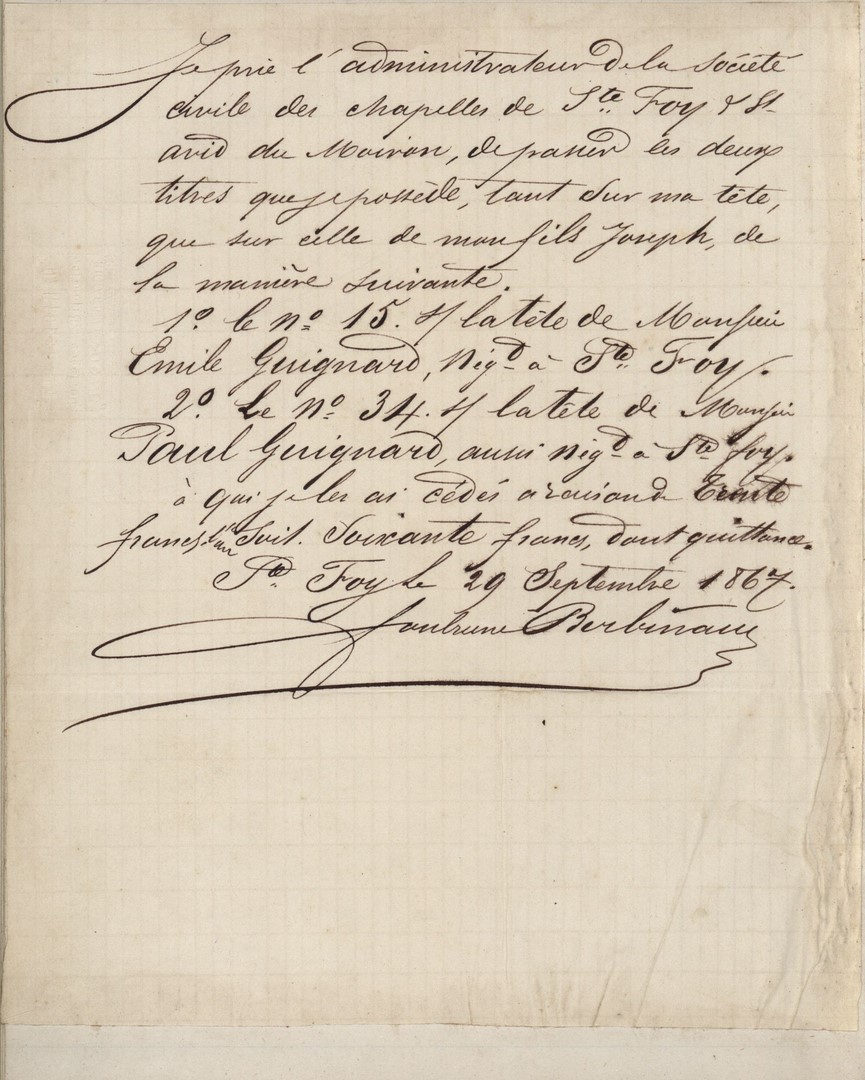 Je prie l'administrateur de la Société
civile des chapelles de Ste Foy & St
avid du Moiron, de passer les deux
titres que je possède, tant sur ma tête,
que sur celle de mon fils Joseph, de
la manière suivante.
1º le nº 15. s/ la tête de Monsieur
Emile Guignard, Nég.t à Ste Foy.
2º Le nº 34. s/ la tête de Monsieur
Paul Guignard, aussi nég.t à Ste foy.
à qui je les ai cédés à raison de Trente
francs l'un Soit. Soixante francs, dont quittance.
Ste Foy Le 29 Septembre 1867.
Berbineau